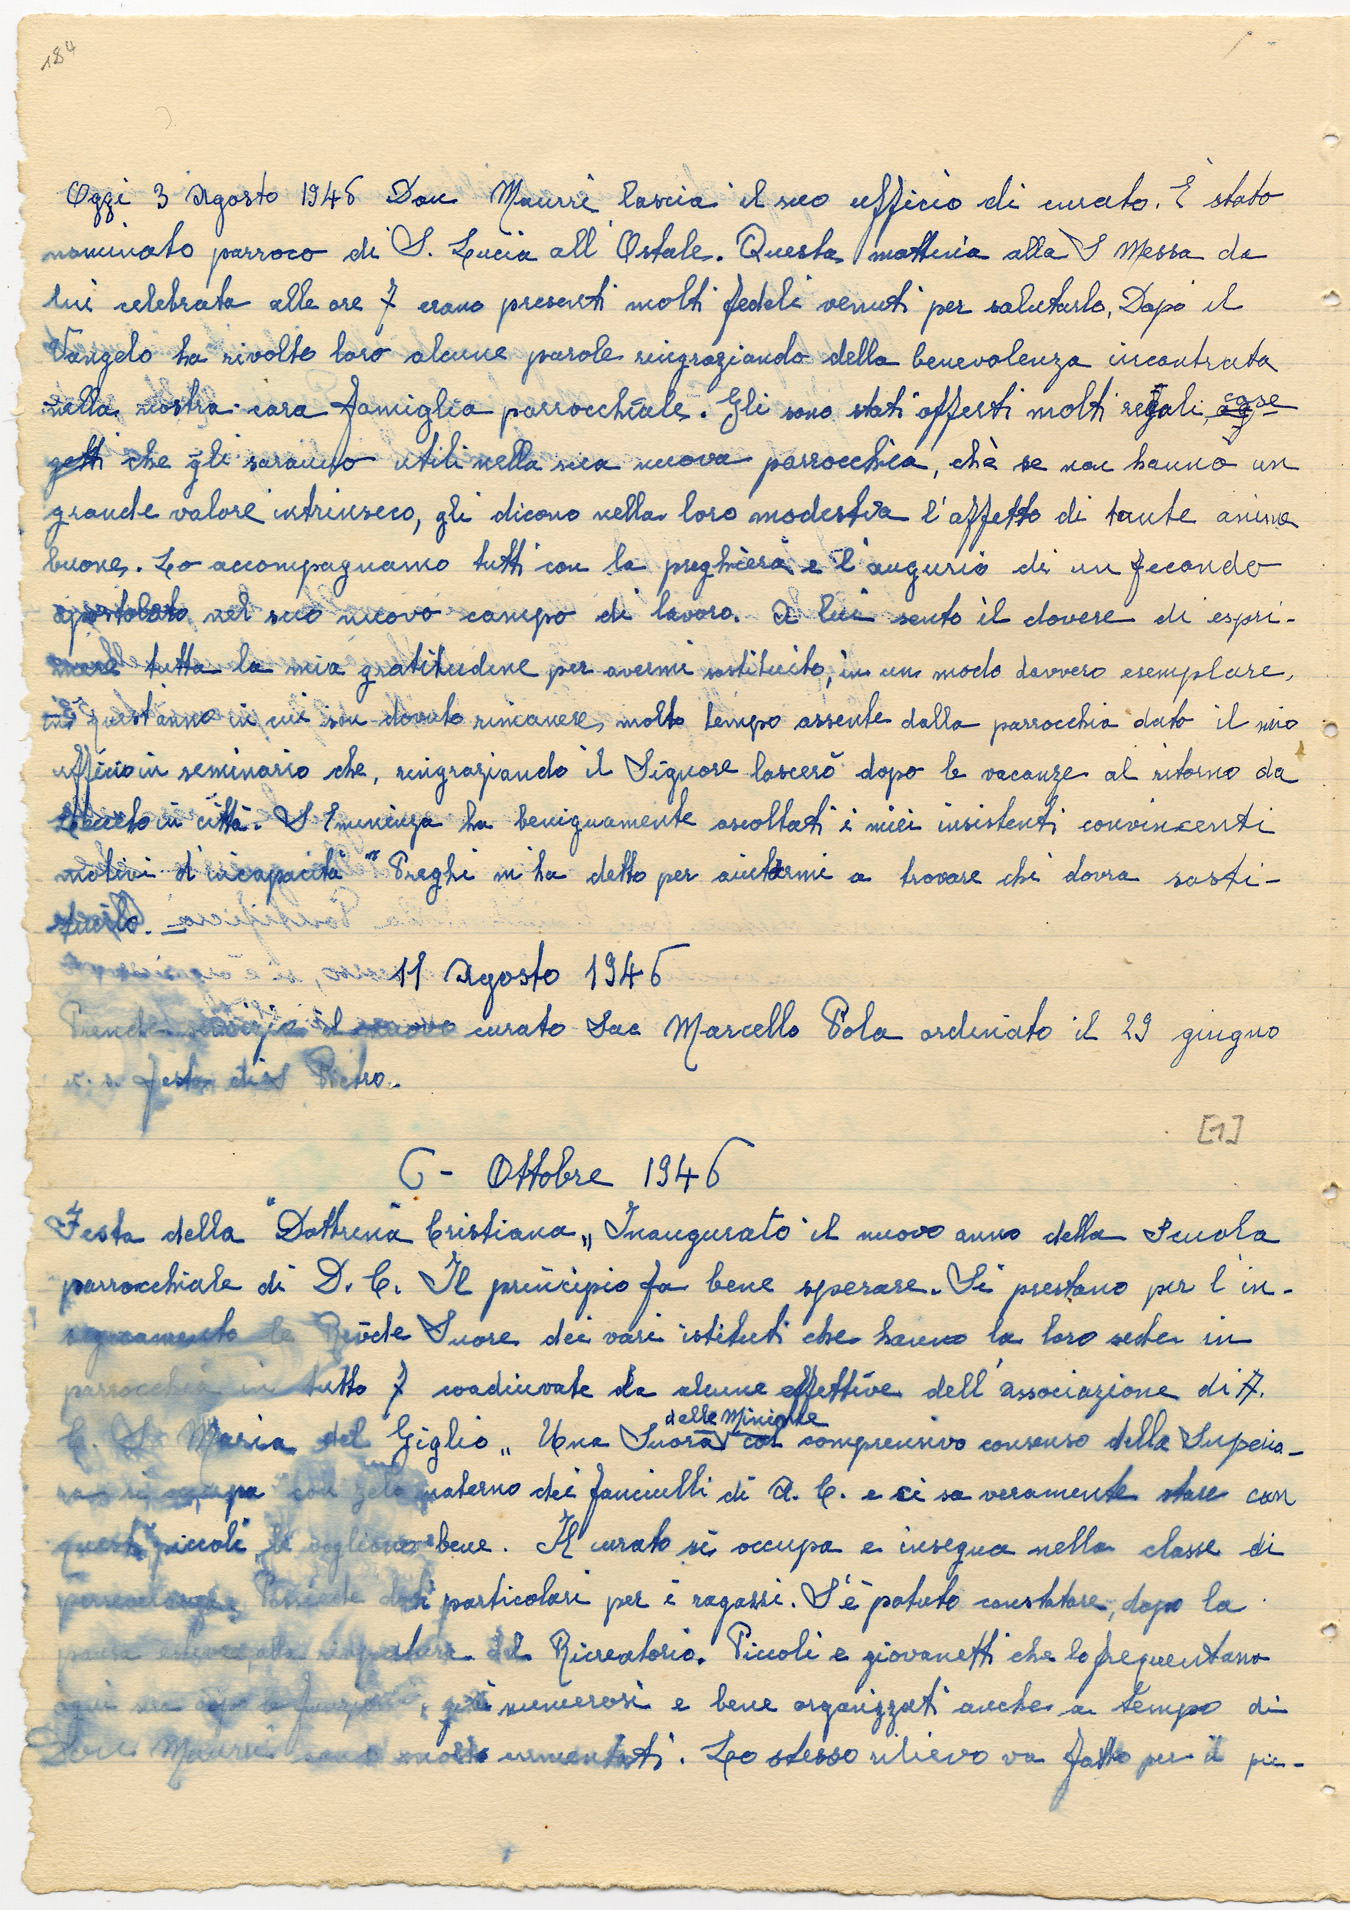 184
Oggi 3 Agosto 1946 Don Maurri lascia il suo ufficio di curato. È stato
nominato parroco di S. Lucia all'Ostale. Questa mattina alla S Messa da
lui celebrata alle ore 7 erano presenti molti fedeli venuti per salutarlo. Dopo il
Vangelo ha rivolto loro alcune parole ringraziando della benevolenza incontrata
nella nostra cara famiglia parrocchiale. Gli sono stati offerti molti regali, cose
getti che gli saranno utili nella sua nuova parrocchia, chè se non hanno un
grande valore intrinseco, gli dicono nella loro modestia l'affetto di tante anime
buone. Lo accompagnamo tutti con la preghiera e l'augurio di un fecondo
apostolato nel suo nuovo campo di lavoro. A lui sento il dovere di espri-
mere tutta la mia gratitudine per avermi sostituito, in un modo davvero esemplare,
in quest'anno in cui son dovuto rimanere molto tempo assente dalla parrocchia dato il mio
ufficio in seminario che, ringraziando il Signore lascerò dopo le vacanze al ritorno da
Lecceto in città. S Eminenza ha benignamente ascoltati i miei insistenti convincenti
motivi d'incapacità "Preghi m'ha detto per aiutarmi a trovare chi dovrà sosti-
tuirlo.
11 Agosto 1946
Prende servizio il nuovo curato Sac Marcello Pola ordinato il 29 giugno
u. s. festa di S Pietro.
[1]
6 - Ottobre 1946
Festa della "Dottrina Cristiana" Inaugurato il nuovo anno della Scuola
parrocchiale di D. C. Il principio fa bene sperare. Si prestano per l'in-
segnamento le Rev̄de Suore dei vari istituti che hanno la loro sede in
parrocchia in tutto 7 coadiuvate da alcune effettive dell'associazione di A.
C. S. Maria del Giglio" Una Suora delle Minime col comprensivo consenso della Superio-
ra si occupa con zelo materno dei fanciulli di A. C. e ci sa veramente stare con
questi piccoli le vogliono bene. Il curato si occupa e insegna nella classe di
perseveranza. Possiede doti particolari per i ragazzi. S'è potuto constatare, dopo la
pausa estiva, alla riapertura del Ricreatorio. Piccoli e giovanetti che lo frequentano
ogni sera dopo le funzioni, già numerosi e bene organizzati anche a tempo di
Don Maurri sono molto aumentati. Lo stesso rilievo va fatto per il pic-